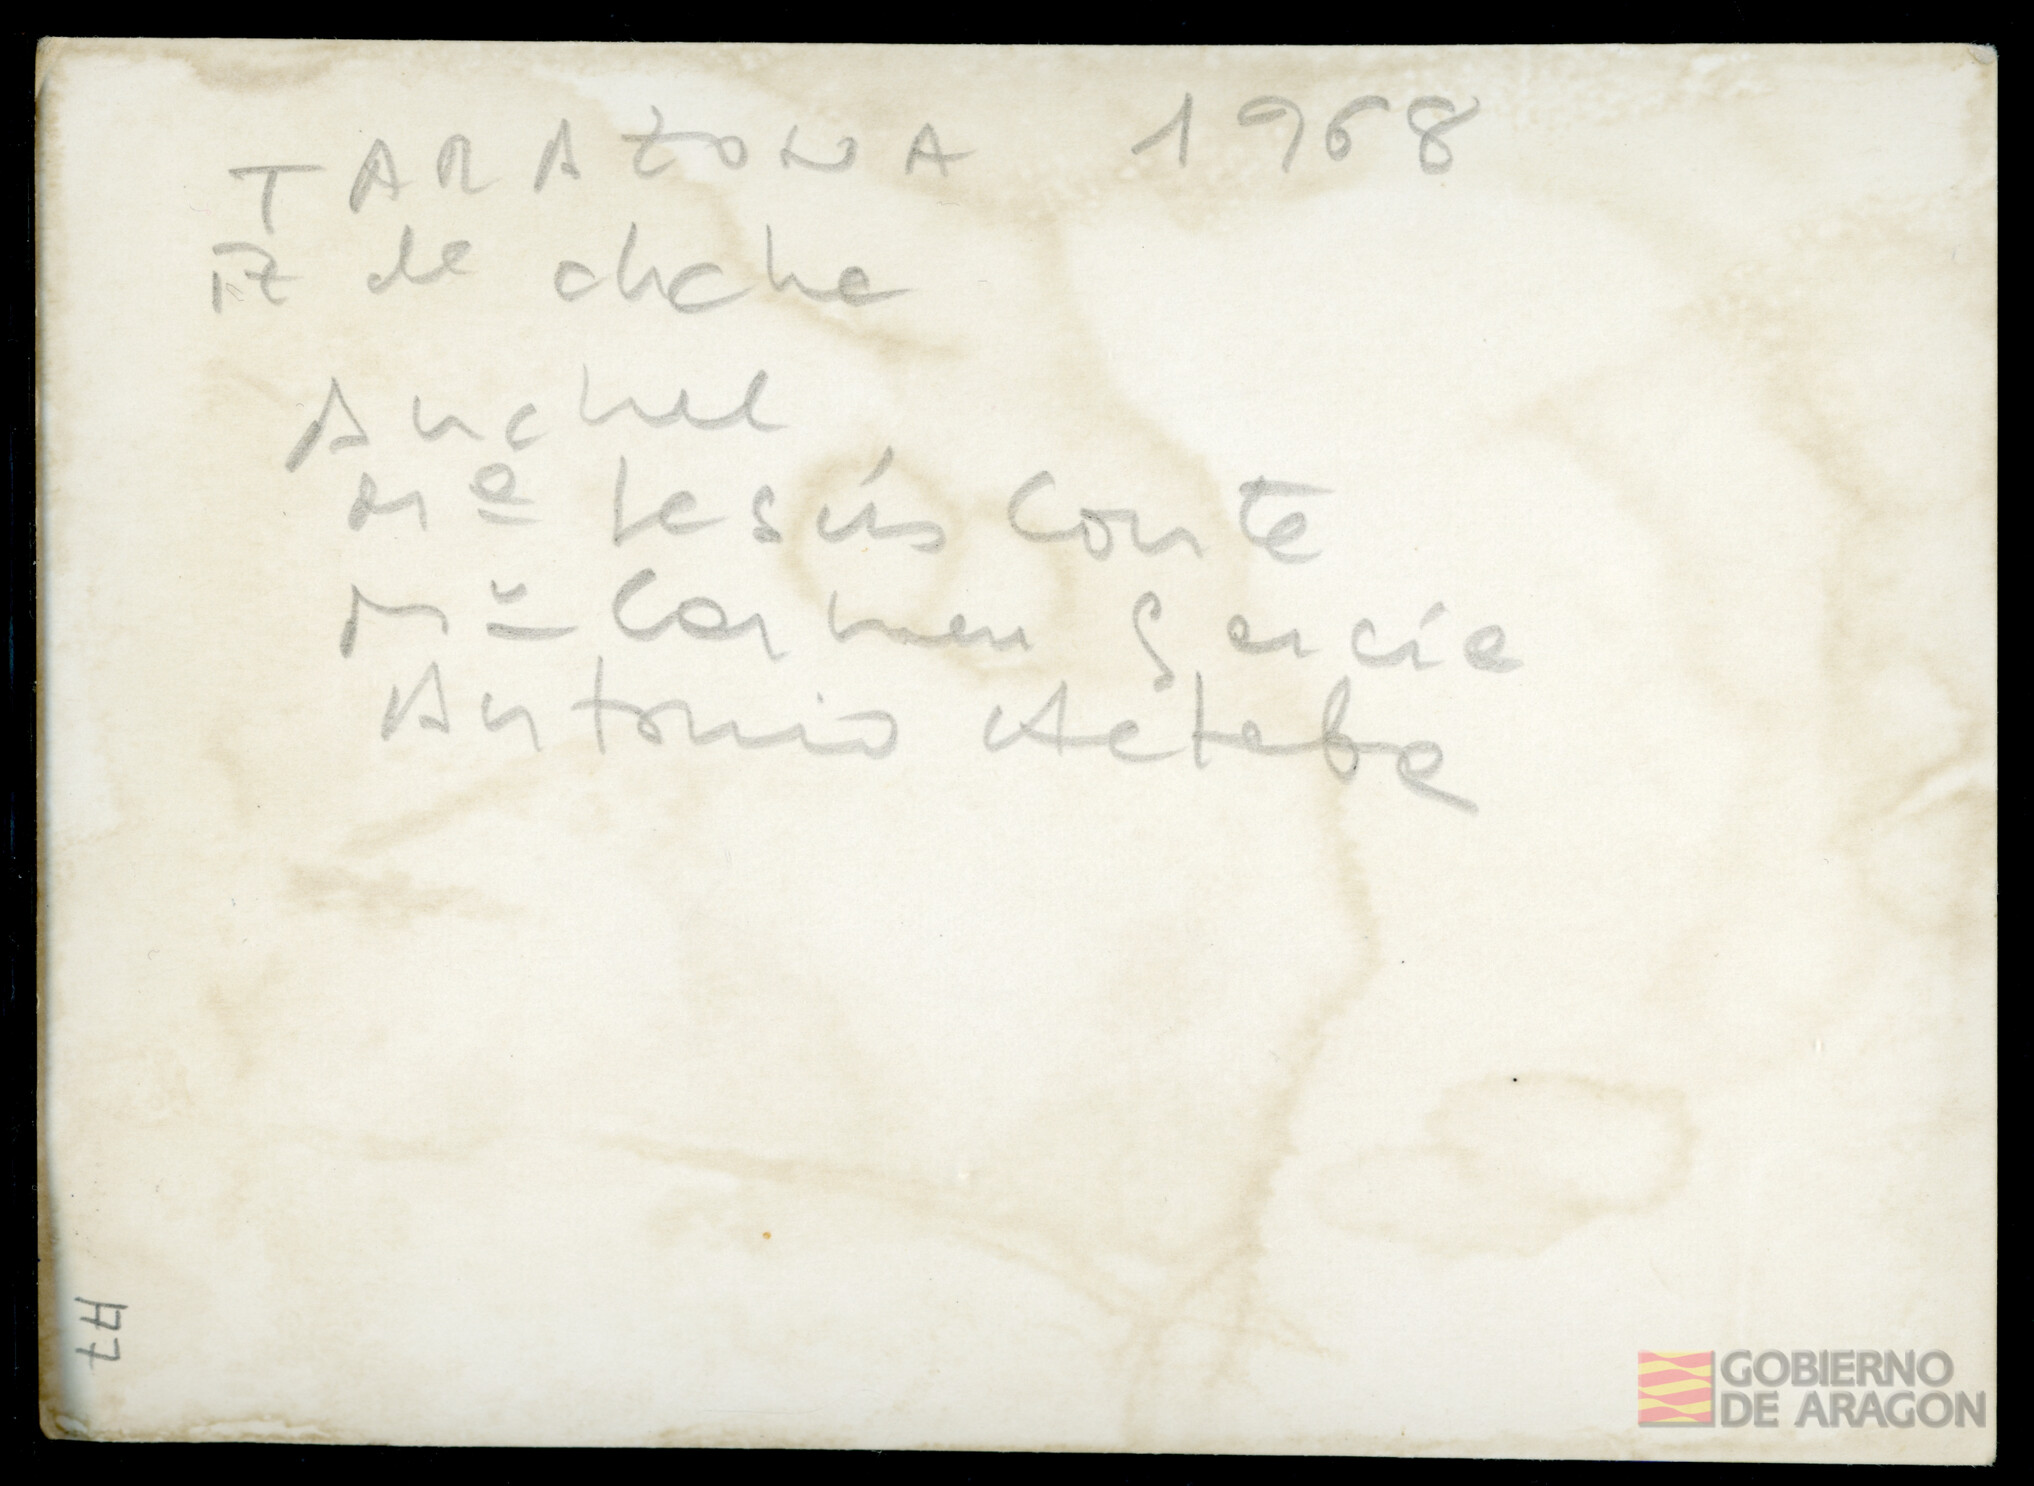 TARAZONA 1968
IZ de dcha
Anchel
Mª Jesús Conte
Mª Carmen García
Antonio Artabe
H77
GOBIERNO
DE ARAGON